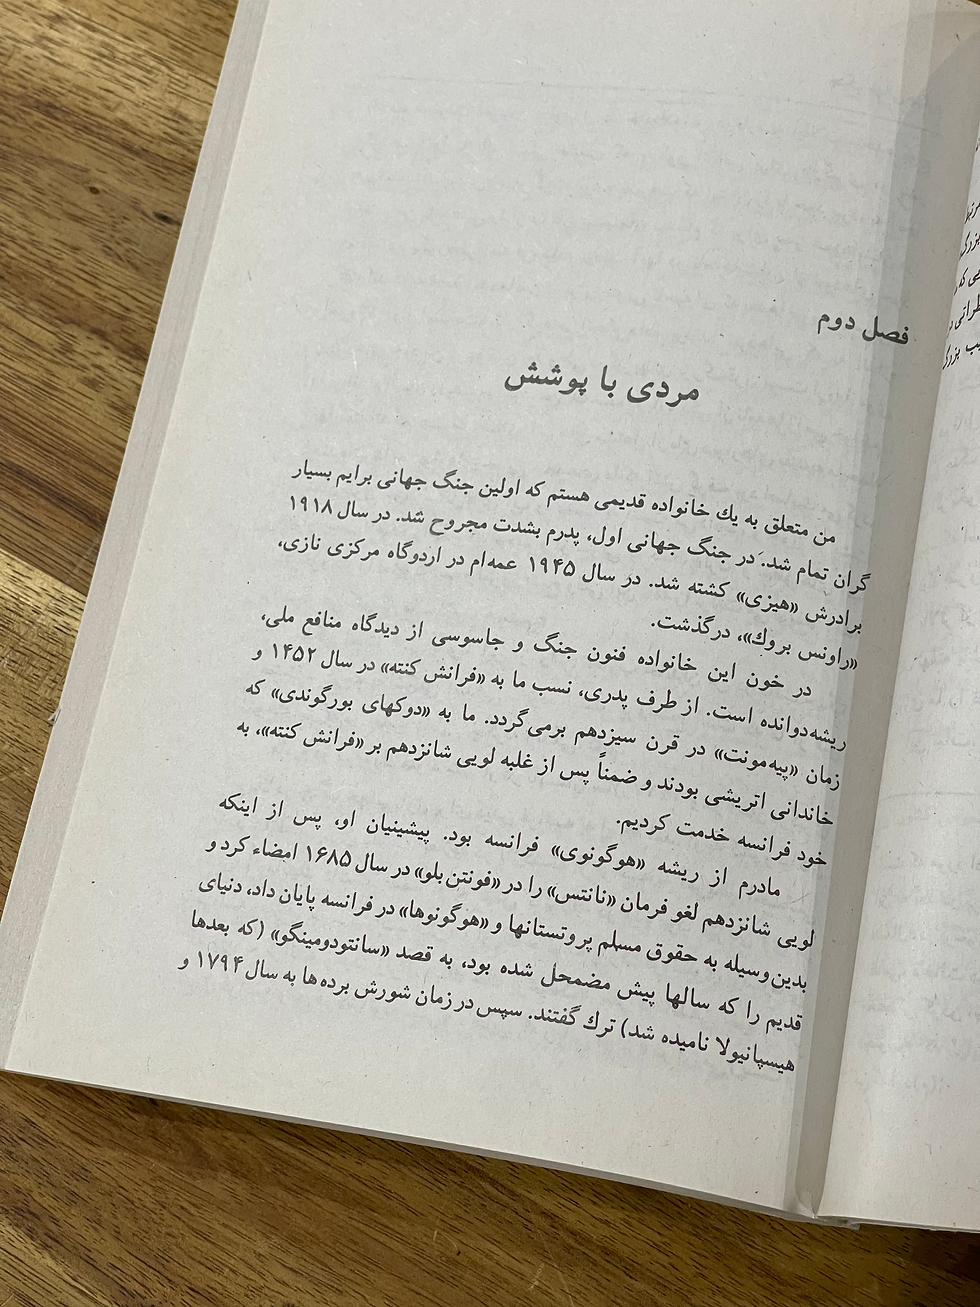 فصل دوم
مردی با پوشش
من متعلق به یك خانواده قدیمی هستم که اولین جنگ جهانی برایم بسیار
گران تمام شد. در جنگ جهانی اول، پدرم بشدت مجروح شد. در سال ۱۹۱۸
برادرش «هیزی» کشته شد. در سال ۱۹۴۵ عمه‌ام در اردوگاه مرکزی نازی،
«راونس بروك»، درگذشت.
در خون این خانواده فنون جنگ و جاسوسی از دیدگاه منافع ملی،
ریشه‌دوانده است. از طرف پدری، نسب ما به «فرانش کنته» در سال ۱۴۵۲ و
زمان «پیه‌مونت» در قرن سیزدهم برمی‌گردد. ما به «دوکهای بورگوندی» که
خاندانی اتریشی بودند و ضمناً پس از غلبه لویی شانزدهم بر «فرانش کنته»، به
خود فرانسه خدمت کردیم.
مادرم از ریشه «هوگونوی» فرانسه بود. پیشینیان او، پس از اینکه
لویی شانزدهم لغو فرمان «نانتس» را در «فونتن‌بلو» در سال ۱۶۸۵ امضاء کرد و
بدین‌وسیله به حقوق مسلم پروتستانها و «هوگونوها» در فرانسه پایان داد، دنیای
قدیم را که سالها پیش مضمحل شده بود، به قصد «سانتودومینگو» (که بعدها
هیسپانیولا نامیده شد) ترك گفتند. سپس در زمان شورش برده‌ها به سال ۱۷۹۴ و